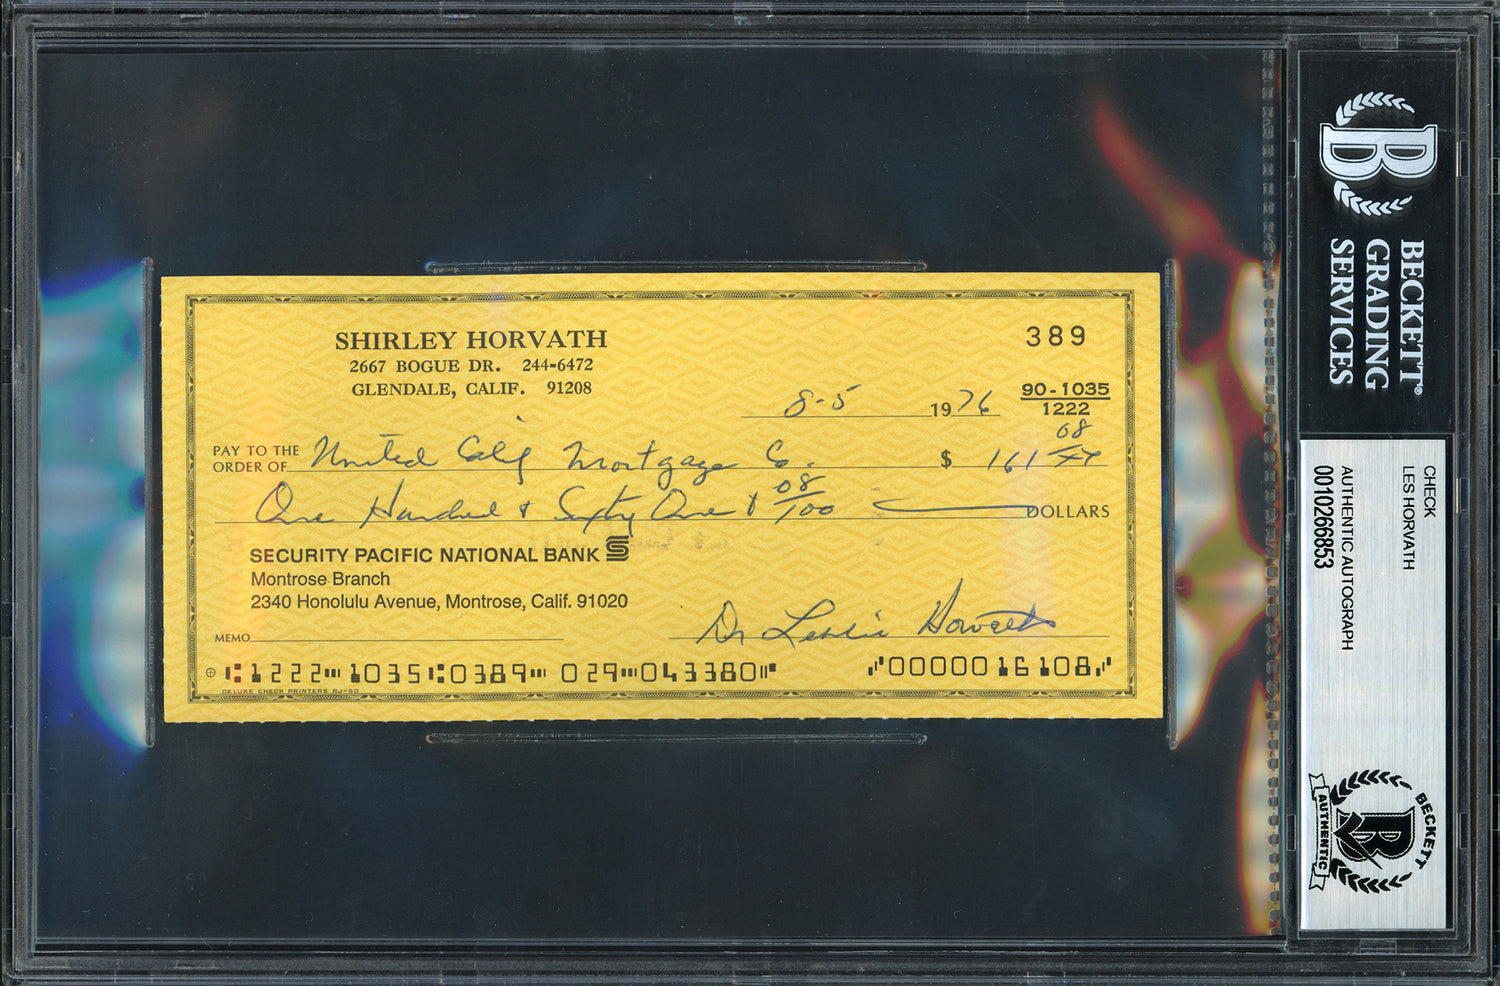 SHIRLEY HORVATH
2667 BOGUE DR. 244-6472
GLENDALE, CALIF. 91208
389
8-5 1976
90-1035
1222
PAY TO THE
ORDER OF United Calif Mortgage Co. $ 161 08/xx
One Hundred & Sixty One & 08/100 DOLLARS
SECURITY PACIFIC NATIONAL BANK
Montrose Branch
2340 Honolulu Avenue, Montrose, Calif. 91020
MEMO
Dr Leslie Horvath
⑆1222⑉1035⑆0389⑉ 029⑉043380⑈ ⑇0000016108⑇
DELUXE CHECK PRINTERS RJ-5D
BECKETT
GRADING
SERVICES
CHECK
LES HORVATH
AUTHENTIC AUTOGRAPH
0010266853
BECKETT
AUTHENTIC